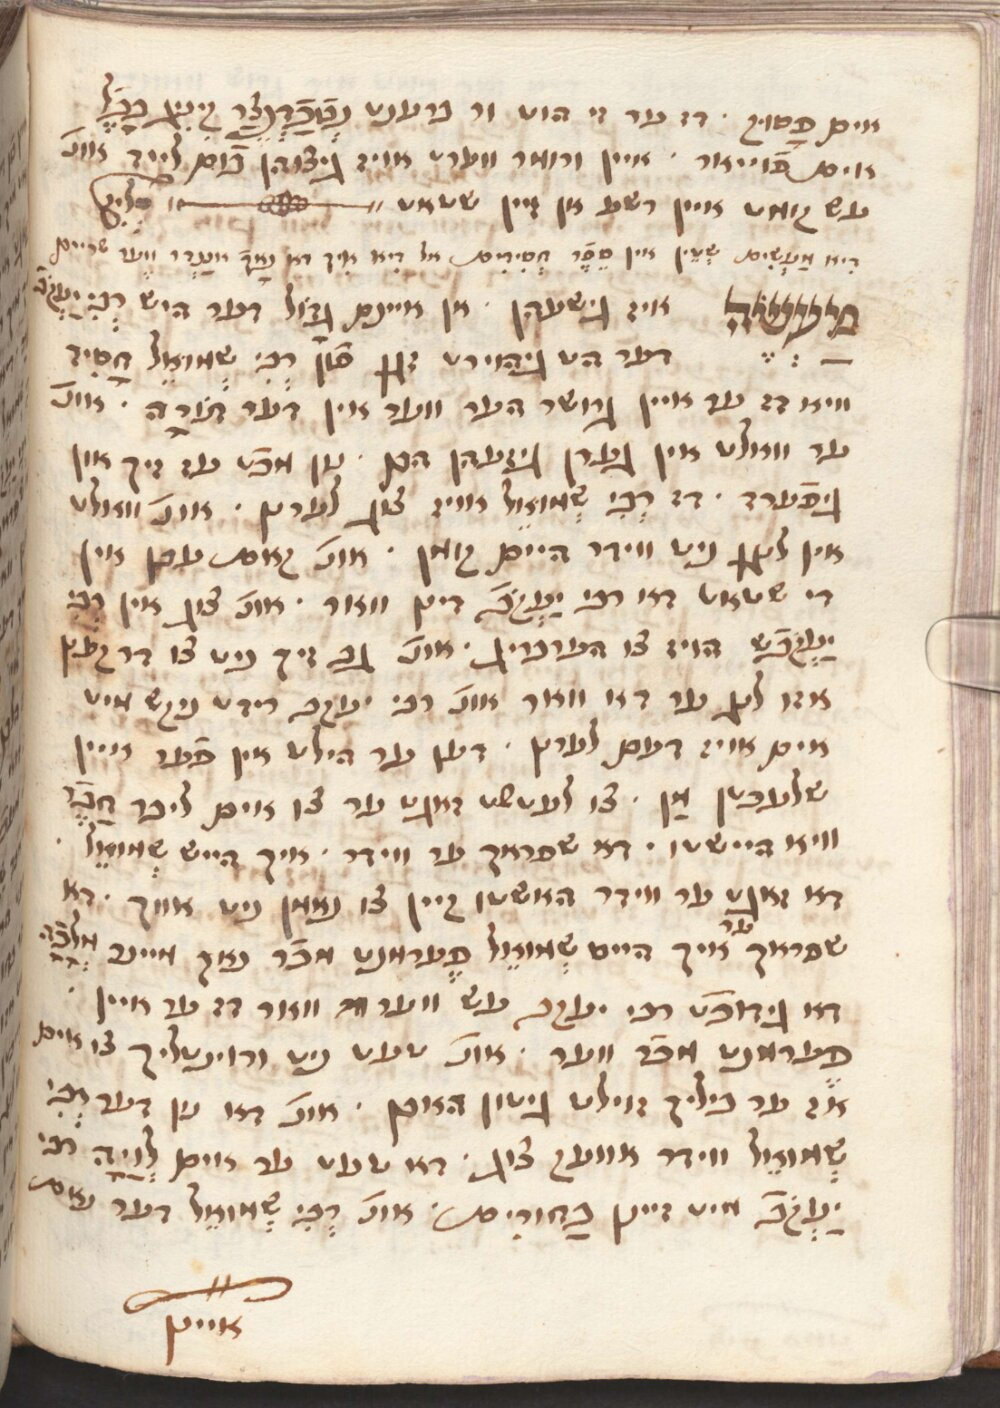 אוים פסוק . דז ער זי הוט ור ברענט נבוכדנצר קיניג בבל
אויס פוייאר . איין ורואר ווערט אויז גיצוהן פום לייד אונ
עש קומט איין רשע אן זיין שטאט סליק
דיא מעשים שטין אין ספר חסידים אל דיא איך דא נאך
מעשה אויז גישעהן . אן איינם גדול דער היש רבי יעקב
דער הט גיהוירט זגן פון רבי שמואל חסיד
וויא דז ער איין גרושר הער ווער אין דער תורה . אונ
ער וואלט אין גערן גיזעהן הבן . נון מכט עז זיך און
גיפערד . דז רבי שמואל אויז צוג לערנן . אונ וואלט
אין לנג ניט ווידר היים קומן . אונ קאם עבן אין
די שטאט דאו רבי יעקב דינן וואר . אונ צוג אין רבי
יעקבש הויז צו הערבריג . אונ גב זיך ניט צו דר קענן
אזו לנג ער דאו וואר אונ רבי יעקב רידט ניקש מיט
אים אויז דעם לערנן . דען ער הילט אין פער איין
שלעכטן מן . צו לעטשט זאגט ער צו אוים ליבר חבר
וויא היישטו . דא שפראך ער ווידר . איך הייש שמואל .
דא זאגט ער ווידר האשטו קיין צו נאמן ניט אויך . דא
שפראך ער איך הייס שמואל פערמנט מכר נאך מיינר מלאכה
דא גידוכט רבי יעקב עש ווער וואר דז ער איין
פערמנט מכר ווער . אונ טעט ניט ורוינטליך צו אוים
אז ער ביליך זוילט גיטון האבן . אונ דאו נון דער רבי
שמואל ווידר אוועק צוג . דא טעט ער אוים לויה רבי
יעקב מיט זיינן בחורים . אונ רבי שמואל דער נאם
איינן